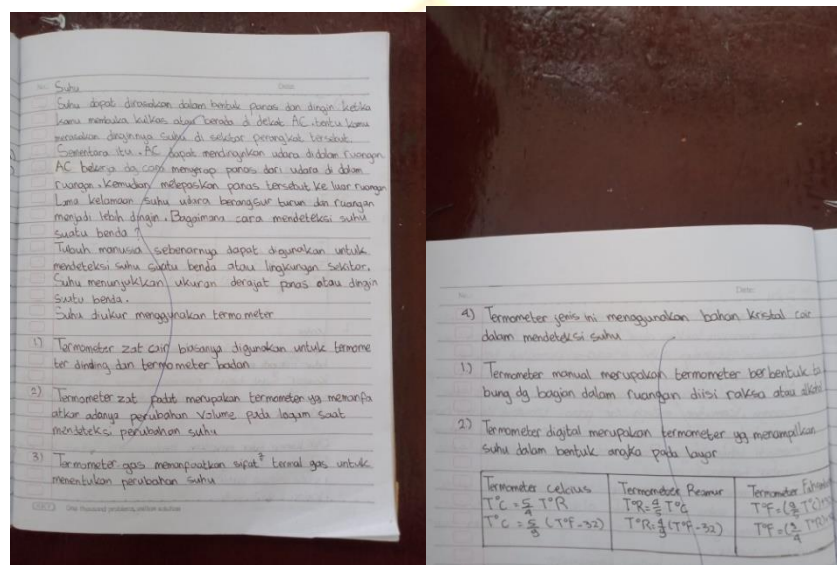 Suhu
Suhu dapat dirasakan dalam bentuk panas dan dingin ketika
kamu membuka kulkas atau berada di dekat AC. tentu kamu
merasakan dinginnya suhu di sekitar perangkat tersebut.
Sementara itu, AC dapat mendinginkan udara di dalam ruangan
AC bekerja dg cara menyerap panas dari udara di dalam
ruangan. Kemudian melepaskan panas tersebut ke luar ruangan
Lama kelamaan suhu udara berangsur turun dan ruangan
menjadi lebih dingin. Bagaimana cara mendeteksi suhu
suatu benda ?
Tubuh manusia sebenarnya dapat digunakan untuk
mendeteksi suhu suatu benda atau lingkungan sekitar.
Suhu menunjukkan ukuran derajat panas atau dingin
suatu benda.
Suhu diukur menggunakan termometer
1) Termometer zat cair biasanya digunakan untuk termome
ter dinding dan termometer badan
2) Termometer zat padat merupakan termometer yg memanfa
atkan adanya perubahan volume pada logam saat
mendeteksi perubahan suhu
3) Termometer gas memanfaatkan sifat² termal gas untuk
menentukan perubahan suhu
4) Termometer jenis ini menggunakan bahan kristal cair
dalam mendeteksi suhu
1) Termometer manual merupakan termometer berbentuk ta
bung dg bagian dalam ruangan diisi raksa atau alkohol
2) Termometer digital merupakan termometer yg menampilkan
suhu dalam bentuk angka pada layar
Termometer Celcius Termometer Reamur Termometer Fahren
T°C = 5/4 T°R T°R = 4/5 T°C T°F = (9/5 T°C)
T°C = 5/9 (T°F - 32) T°R = 4/9 (T°F - 32) T°F = (9/4 T°R)